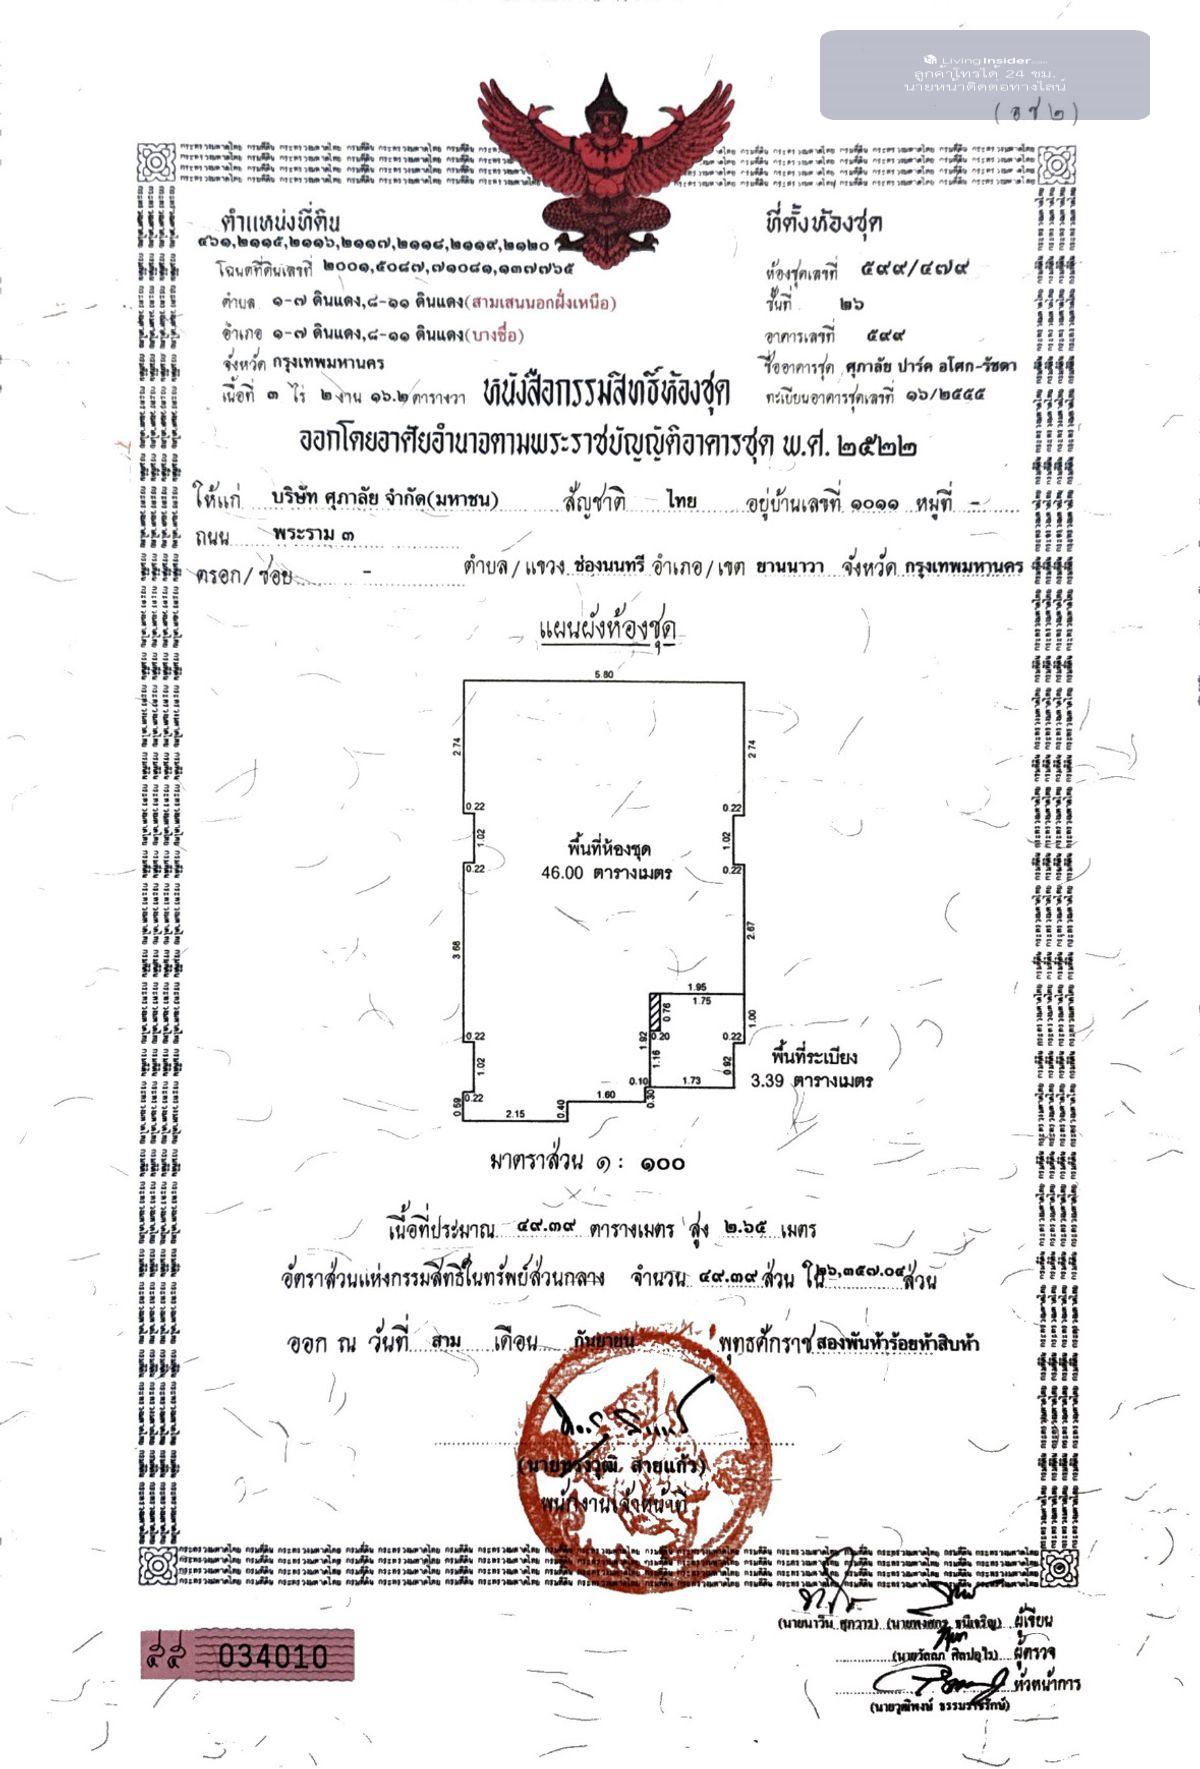 LivingInsider
ลูกค้าโทรได้ 24 ชม.
นายหน้าติดต่อทางไลน์
(อช ๒)
ตำแหน่งที่ดิน
๔๖๑,๒๑๑๕,๒๑๑๖,๒๑๑๗,๒๑๑๘,๒๑๑๙,๒๑๒๐
โฉนดที่ดินเลขที่ ๒๐๐๑,๕๐๘๗,๗๑๐๘๑,๑๓๗๗๖๕
ตำบล ๑-๗ ดินแดง,๘-๑๑ ดินแดง(สามเสนนอกฝั่งเหนือ)
อำเภอ ๑-๗ ดินแดง,๘-๑๑ ดินแดง(บางซื่อ)
จังหวัด กรุงเทพมหานคร
เนื้อที่ ๓ ไร่ ๒ งาน ๑๖.๒ ตารางวา
ที่ตั้งห้องชุด
ห้องชุดเลขที่ ๕๙๙/๔๗๙
ชั้นที่ ๒๖
อาคารเลขที่ ๕๙๙
ชื่ออาคารชุด ศุภาลัย ปาร์ค อโศก-รัชดา
ทะเบียนอาคารชุดเลขที่ ๑๖/๒๕๕๕
หนังสือกรรมสิทธิ์ห้องชุด
ออกโดยอาศัยอำนาจตามพระราชบัญญัติอาคารชุด พ.ศ. ๒๕๒๒
ให้แก่ บริษัท ศุภาลัย จำกัด(มหาชน) สัญชาติ ไทย อยู่บ้านเลขที่ ๑๐๑๑ หมู่ที่ -
ถนน พระราม ๓
ตรอก/ซอย - ตำบล/แขวง ช่องนนทรี อำเภอ/เขต ยานนาวา จังหวัด กรุงเทพมหานคร
แผนผังห้องชุด
5.80
2.74 2.74
0.22 0.22
1.02 1.02
0.22 0.22
พื้นที่ห้องชุด
46.00 ตารางเมตร
3.68 2.67
1.95
1.75
0.76 1.00
0.22 1.92 0.20 0.22
1.02 1.16 0.92
พื้นที่ระเบียง
3.39 ตารางเมตร
0.22 0.10 1.73
0.59 2.15 0.40 1.60 0.30
มาตราส่วน ๑ : ๑๐๐
เนื้อที่ประมาณ ๔๙.๓๙ ตารางเมตร สูง ๒.๖๕ เมตร
อัตราส่วนแห่งกรรมสิทธิ์ในทรัพย์ส่วนกลาง จำนวน ๔๙.๓๙ ส่วน ใน ๒๖,๓๕๗.๐๔ ส่วน
ออก ณ วันที่ สาม เดือน กันยายน พุทธศักราช สองพันห้าร้อยห้าสิบห้า
(นายทรงวุฒิ สายแก้ว)
พนักงานเจ้าหน้าที่
(นายนาวิน สุภวาร) (นายพงศกร ธนีเจริญ) ผู้เขียน
ผู้ตรวจ
หัวหน้าการ
(นายวุฒิพงษ์ ธรรมราชรักษ์)
๕๕ 034010